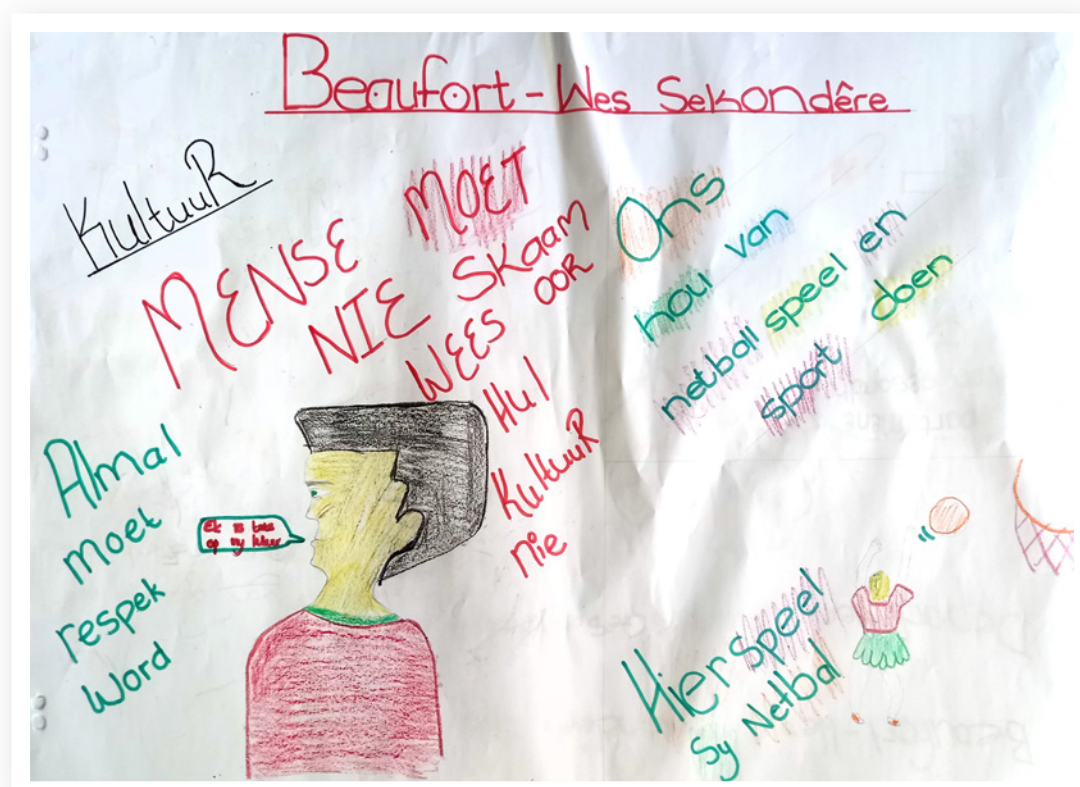 Beaufort-Wes Sekondêre
KultuuR
MENSE MOET
NIE SKAAM
WEES OOR
Hul
KultuuR
nie
Ons
hou van
netball speel en
sport doen
Almal
moet
respek
word
Ek is
op my kleur
Hier speel
Sy Netbal